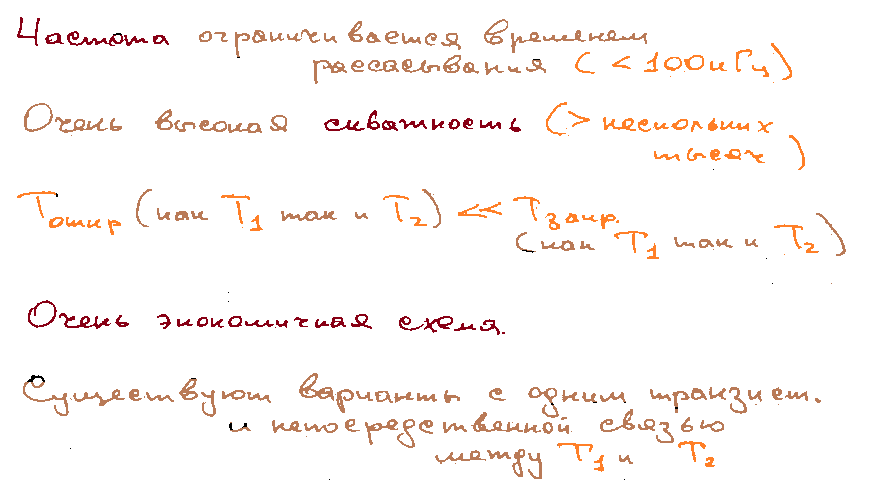 Частота ограничивается временем
рассасывания ( < 100кГц)
Очень высокая скважность (> нескольких
тысяч )
Tоткр (как T1 так и T2) << Tзакр.
(как T1 так и T2)
Очень экономичная схема.
Существуют варианты с одним транзист.
и непосредственной связью
между T1 и T2